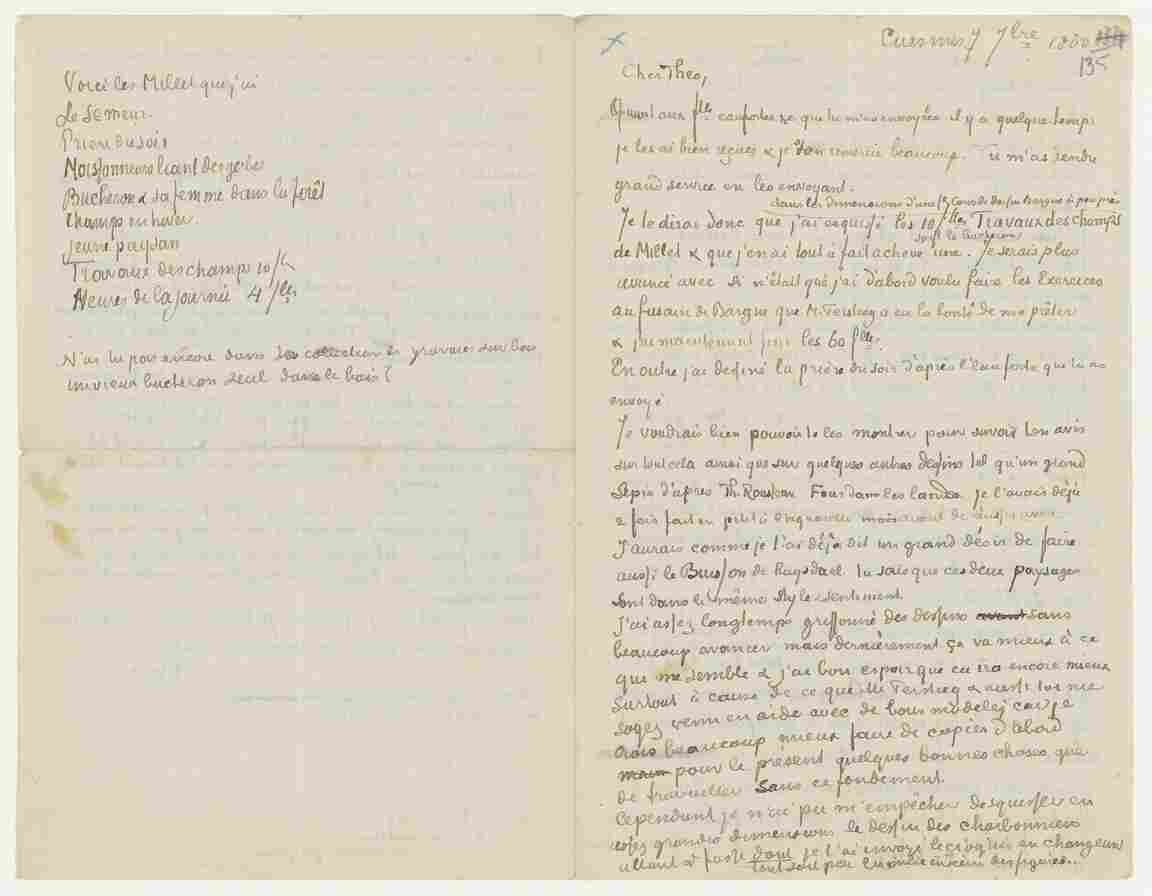 Voici les Millet que j'ai
Le Semeur.
Prière du soir
Moissonneurs liant des gerbes
Bucheron & sa femme dans la forêt
Champs en hiver.
Jeune paysan
Travaux des champs 10/
Heures de la journée 4/lles
N'as tu pas encore dans la collection de gravures sur bois
un vieux bucheron seul dans le bois?
Cuesmes, 7 7bre 1880
135
Cher Theo,
Quant aux flles eauxfortes &c que tu m'as envoyées il y a quelque temps
je les ai bien reçues & je t'en remercie beaucoup. Tu m'as rendu
grand service en les envoyant.
dans les dimensions d'une flle Cours de dessin Bargue à peu près
Je te dirai donc que j'ai esquissé les 10 flles Travaux des champs
de Millet & que j'en ai tout à fait achevé une. Je serais plus
soit le bucheron
avancé avec si n'était que j'ai d'abord voulu faire les Exercices
au fusain de Bargue que Mr Tersteeg a eu la bonté de me prêter
& j'ai maintenant fini les 60 flles.
En outre j'ai dessiné la prière du soir d'après l'eau forte que tu as
envoyé
Je voudrais bien pouvoir te les montrer pour savoir ton avis
sur tout cela ainsi que sur quelques autres dessins tel qu'un grand
Sepia d'après Th. Rousseau Four dans les landes. Je l'avais déjà
2 fois fait en petit à l'aquarelle mais avant de
J'aurais comme je t'ai déjà dit un grand désir de faire
aussi le Buisson de Ruysdael tu sais que ces deux paysages
sont dans le même style & sentiment.
J'ai assez longtemps griffonné des dessins avant sans
beaucoup avancer mais dernièrement ça va mieux à ce
qui me semble & j'ai bon espoir que ca ira encore mieux
Surtout à cause de ce que Mr Tersteeg & aussi toi me
soyez venu en aide avec de bons modèles car je
crois beaucoup mieux faire de copier d'abord
pour le présent quelques bonnes choses que
de travailler sans ce fondement.
Cependant je n'ai pu m'empêcher d'esquisser en
assez grandes dimensions le dessin des charbonniers
allant à la fosse dont je t'ai envoyé le croquis en changeant
tout soit peu figures...